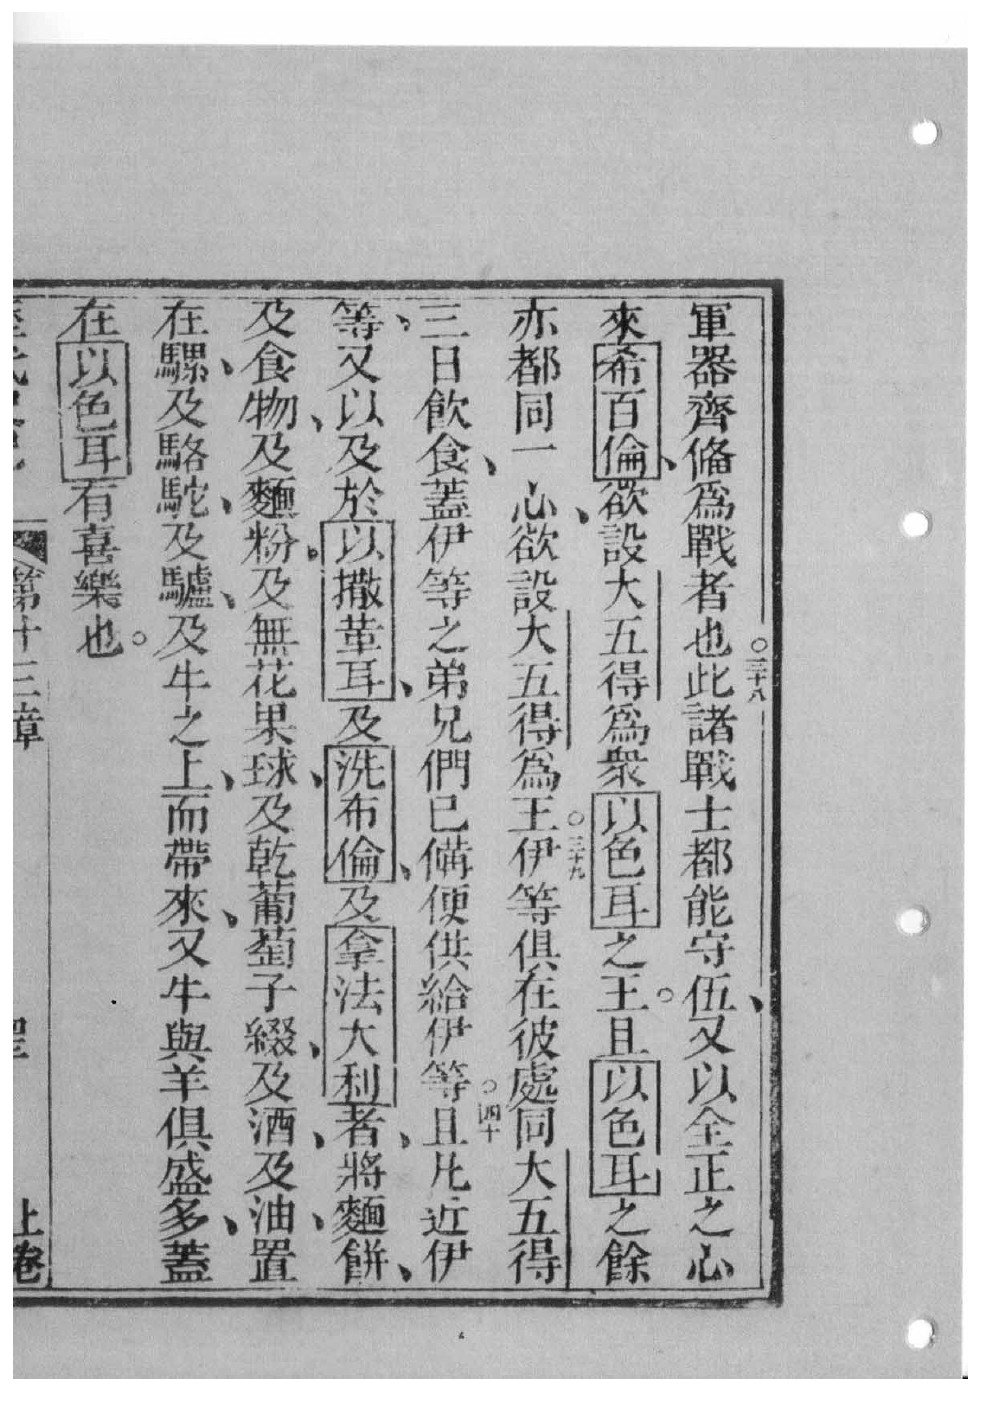 軍器齊偹爲戰者也○三十八此諸戰士都能守伍、又以全正之心
來希百倫、欲設大五得爲衆以色耳之王。且以色耳之餘
亦都同一心、欲設大五得爲王○三十九伊等俱在彼處同大五得
三日飲食、蓋伊等之弟兄們已備便供給伊等○四十且凡近伊
等、又以及於以撒革耳、及洗布倫、及拿法大利者、將麵餅、
及食物、及麵粉、及無花果球、及乾葡萄子綴、及酒、及油、置
在騾、及駱駝、及驢、及牛之上、而帶來、又牛與羊俱盛多、蓋
在以色耳有喜樂也。
第十三章 上卷